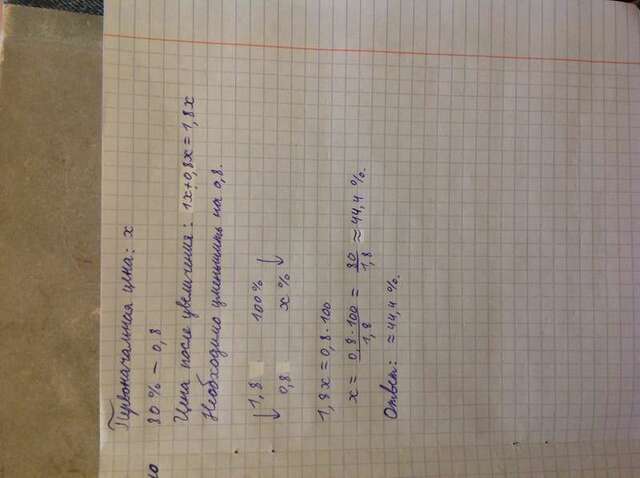 Первоначальная цена: x
80% – 0,8
Цена после увеличения: 1x+0,8x=1,8x
Необходимо уменьшить на 0,8.
↓ 1,8 100% ↓
0,8 x%
1,8x = 0,8·100
x = 0,8·100/1,8 = 80/1,8 ≈ 44,4 %.
Ответ: ≈ 44,4 %.